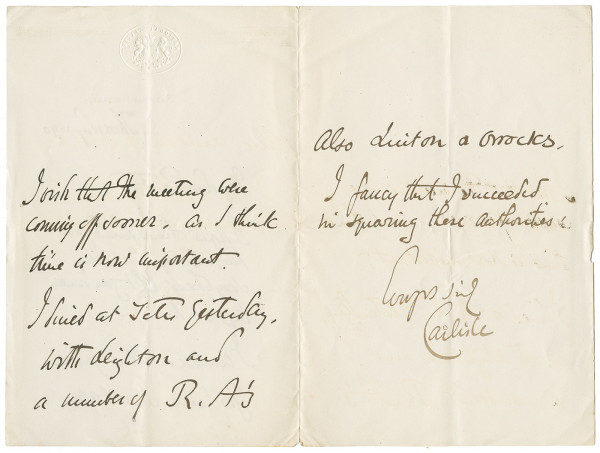 I wish that the meeting were
coming off sooner. as I think
time is now important.
I dined at yesterday,
with Leighton and
a number of R.A's
Also Linton & Orrocks.
I fancy that I succeeded
in squaring these authorities.
Carlisle